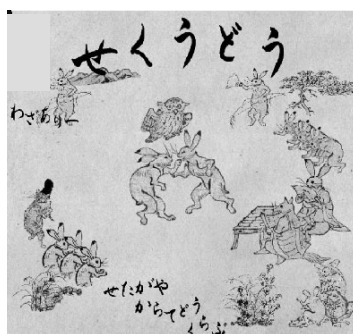 せくうどう
わざあり
せたがや
からてどう
くらぶ